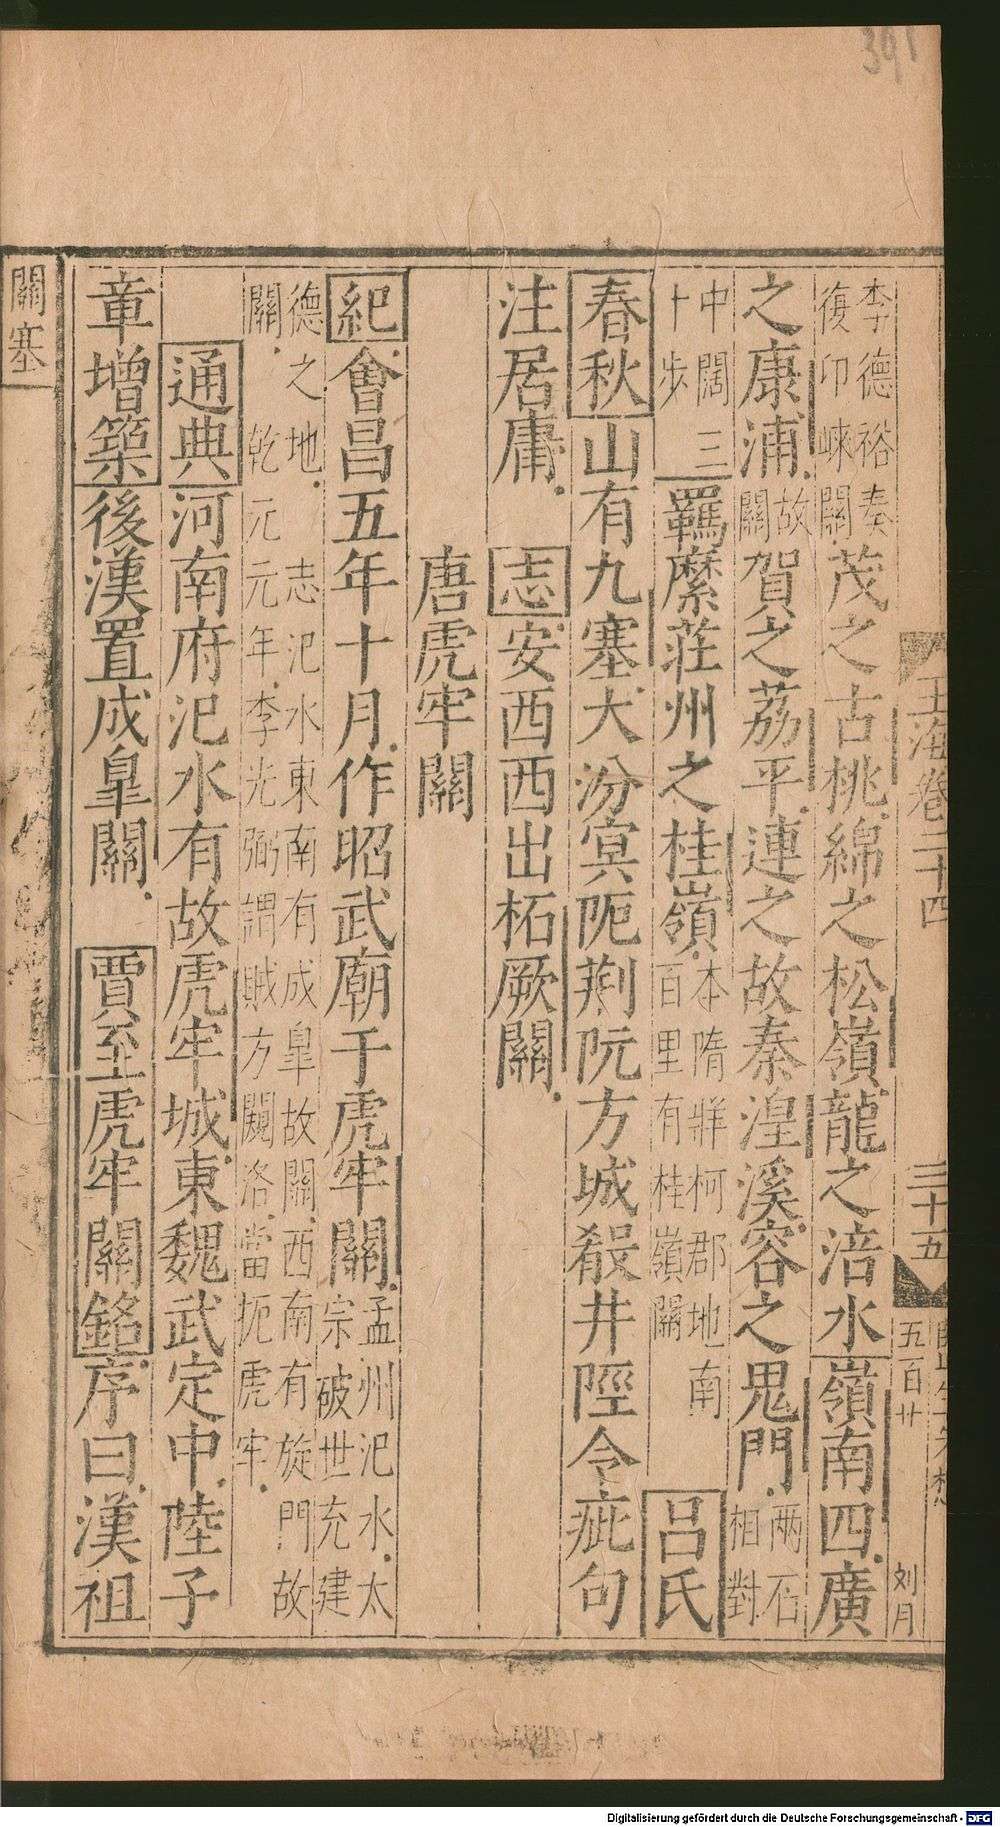 391
玉海卷二十四
三十五
五百廿
刘月
李德裕奏
復卬崍關
茂之古桃綿之松嶺龍之涪水嶺南四廣
之康浦
故
關
賀之荔平連之故秦湟溪容之鬼門
两石
相對
中闊三
十步
羈縻莊州之桂嶺
本隋牂柯郡地南
百里有桂嶺關
呂氏
春秋山有九塞大汾㝠阨荆阮方城殽井陘令疵句
注居庸志安西西出柘厥關
唐虎牢關
紀會昌五年十月作昭武廟于虎牢關
孟州汜水太
宗破世充建
德之地志汜水東南有成臯故關西南有旋門故
關乾元元年李光弼謂賊方闚洛當扼虎牢
通典河南府汜水有故虎牢城東魏武定中陸子
章增築後漢置成臯關賈至虎牢關銘序曰漢祖
關塞
Digitalisierung gefördert durch die Deutsche Forschungsgemeinschaft - DFG